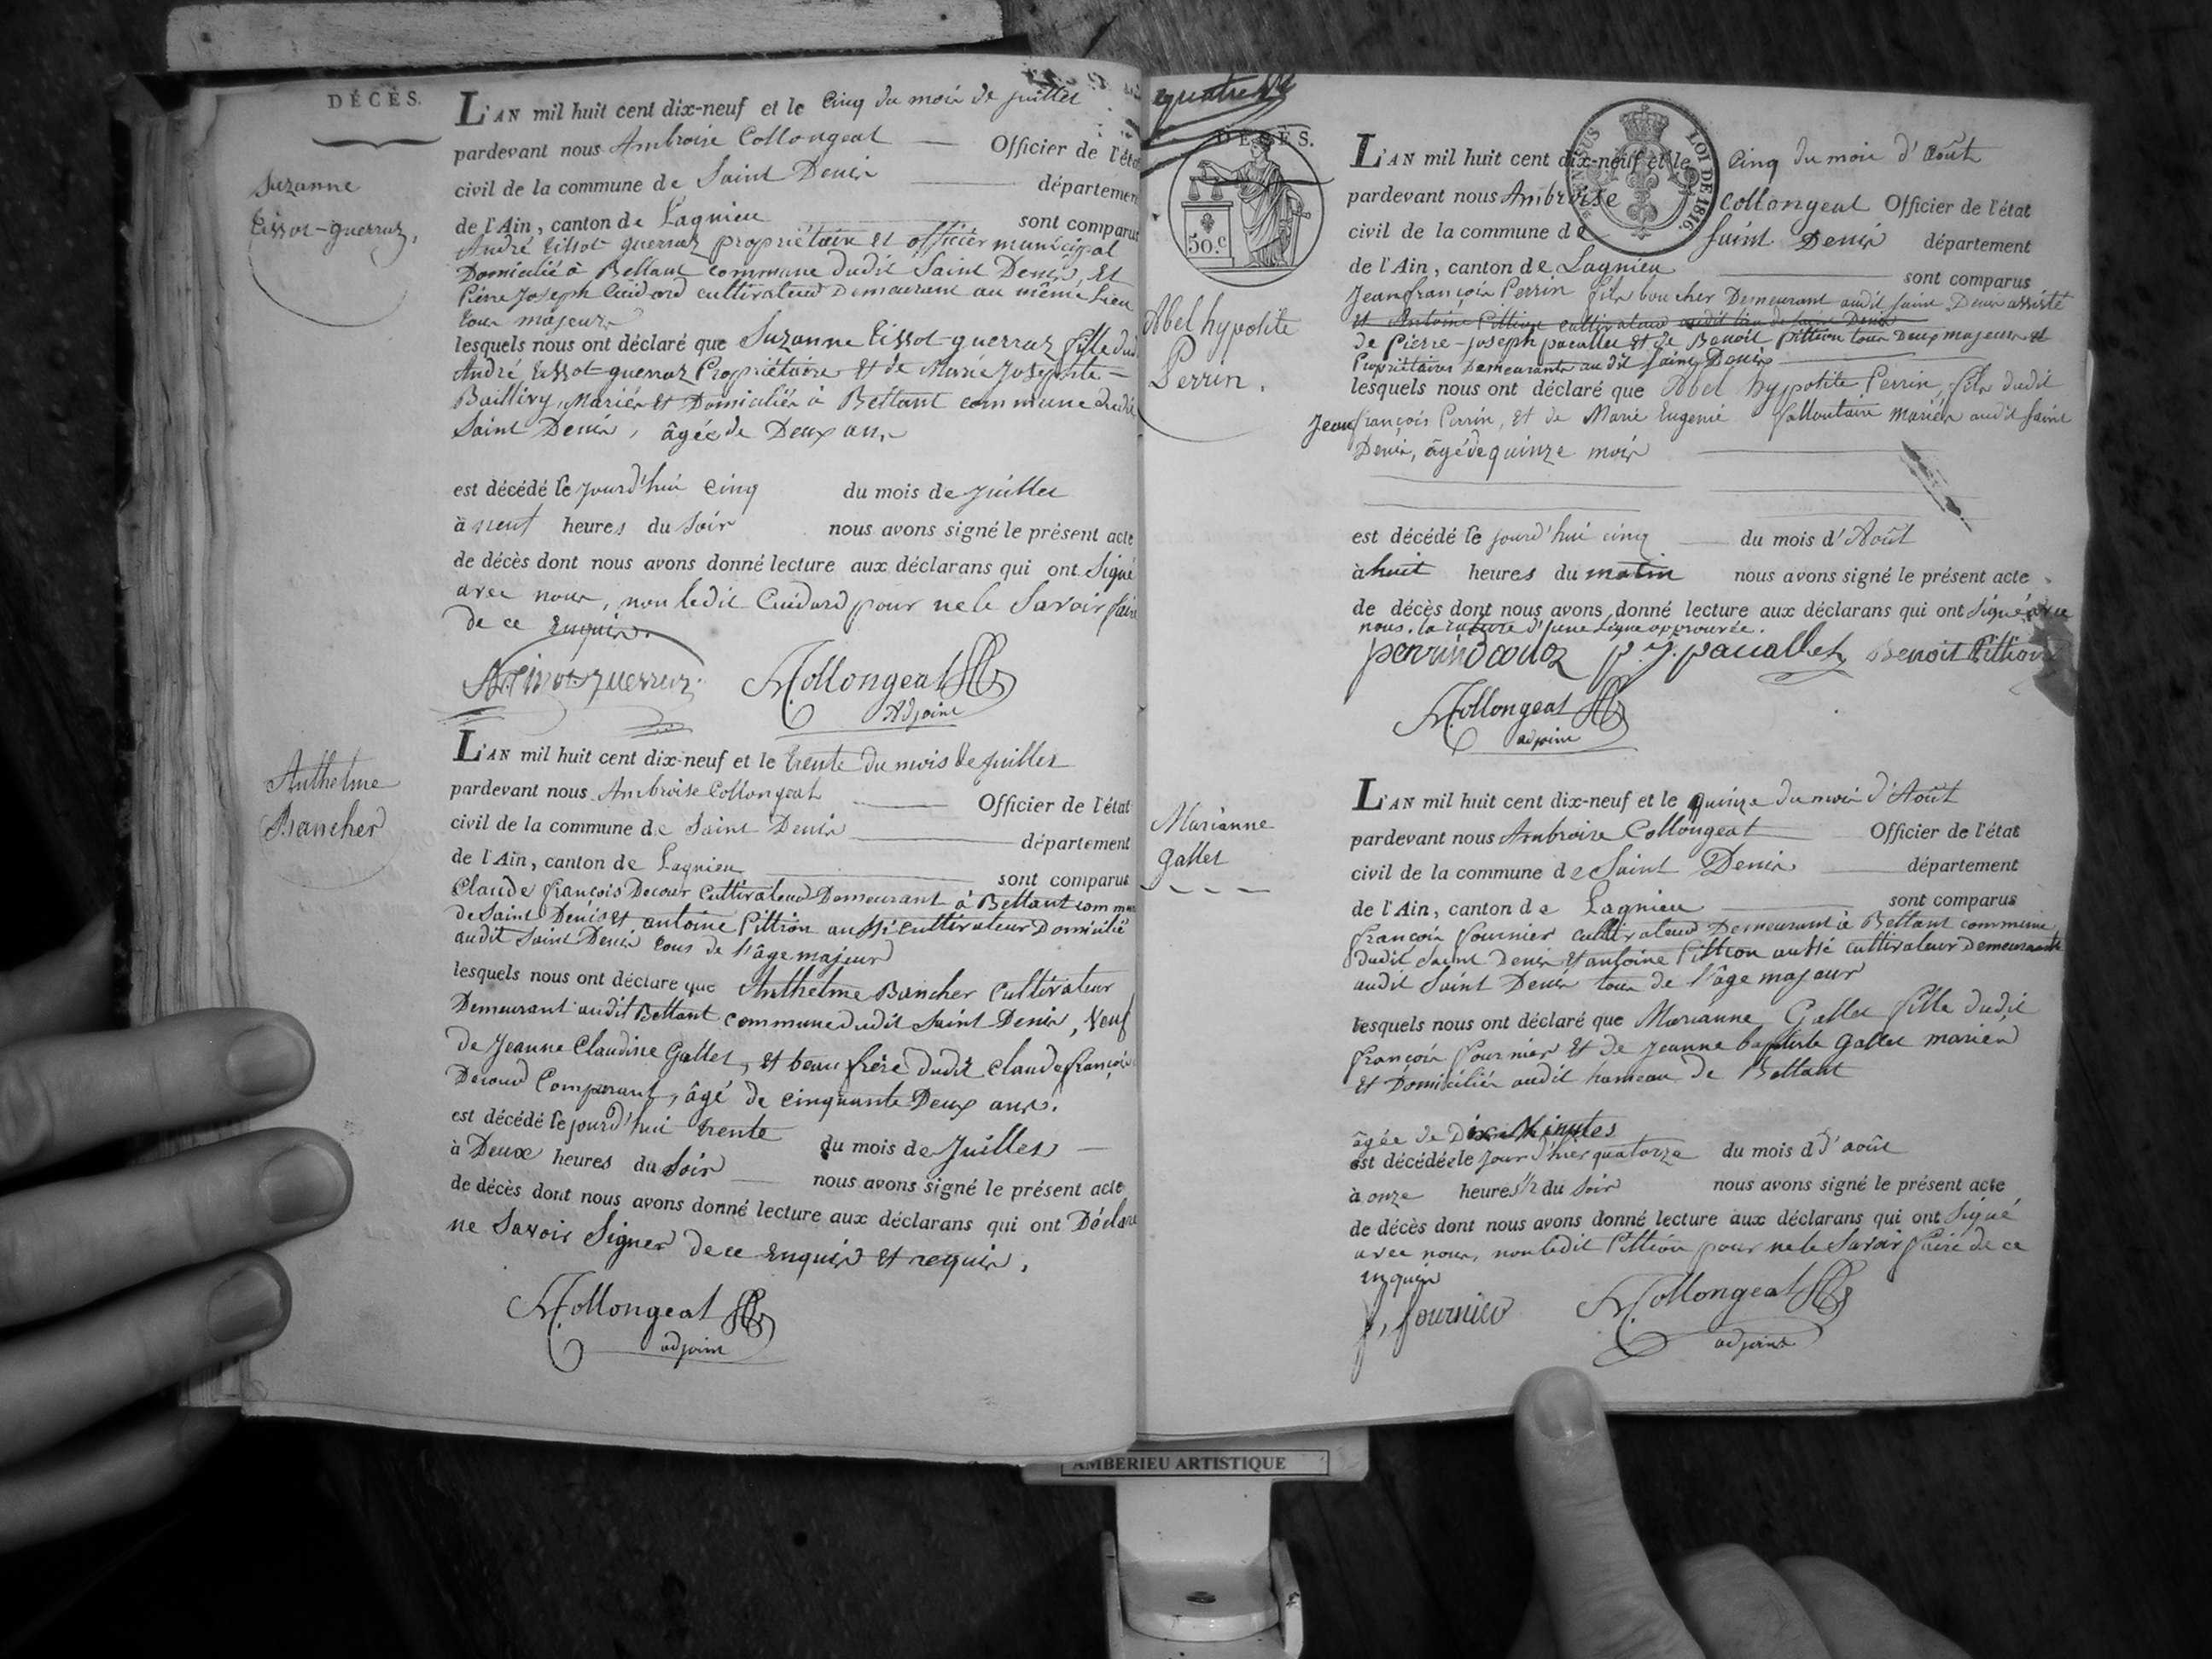 DÉCÈS.
Suzanne
Tissot-guerraz,
L'AN mil huit cent dix-neuf et le Cinq du mois de juillet
pardevant nous Ambroise Collongeat Officier de l'état
civil de la commune de Saint Denis département
de l'Ain, canton de Lagnieu sont comparus
André Tissot-guerraz propriétaire et officier municipal
Domicilié à Bettant commune dudit Saint Denis, et
Pierre Joseph Cuidard cultivateur Demeurant au même Lieu
tous majeurs
lesquels nous ont déclaré que Suzanne Tissot-guerraz fille dud
André Tissot-guerraz Propriétaire et de Marie Josephte
Baillivy, Mariés et Domiciliés à Bettant commune dudit
Saint Denis, âgée de Deux ans
est décédé le jourd'hui cinq du mois de juillet
à neuf heures du soir nous avons signé le présent acte
de décès dont nous avons donné lecture aux déclarans qui ont Signé
avec nous, non ledit Cuidard pour ne le Savoir faire
de ce Enquis.
A. Tissot guerraz A Collongeat
Adjoint
Anthelme
Bancher
L'AN mil huit cent dix-neuf et le trente du mois de juillet
pardevant nous Ambroise Collongeat Officier de l'état
civil de la commune de Saint Denis département
de l'Ain, canton de Lagnieu sont comparus
Claude françois Decour Cultivateur Demeurant à Bettant comm
de Saint Denis et antoine Pittion aussi cultivateur Domicilié
audit Saint Denis tous de l'âge majeur
lesquels nous ont déclaré que Anthelme Bancher Cultivateur
Demeurant audit Bettant commune dudit Saint Denis, Veuf
de Jeanne Claudine Gallet, et beau frère dudit Claude françois
Decour Comparant, âgé de cinquante Deux ans.
est décédé le jourd'hui trente du mois de Juillet
à Deux heures du Soir nous avons signé le présent acte
de décès dont nous avons donné lecture aux déclarans qui ont Déclaré
ne Savoir Signer de ce Enquis et requis.
A Collongeat
adjoint
DÉCÈS.
50.c
LOI DE 1816.
Abel hypolite
Perrin.
L'AN mil huit cent dix-neuf et le Cinq du mois d'août
pardevant nous Ambroise Collongeat Officier de l'état
civil de la commune de Saint Denis département
de l'Ain, canton de Lagnieu sont comparus
Jean françois Perrin fils boucher Demeurant audit saint Denis assisté
et Antoine Pittion cultivateur audit lieu de Saint Denis
de Pierre-joseph pacallet et de Benoit Pittion tous Deux majeurs et
Propriétaires Demeurants audit Saint Denis
lesquels nous ont déclaré que Abel hypolite Perrin, fils dudit
Jean françois Perrin, et de Marie Eugenie mariés audit Saint
Denis, âgé de quinze mois
est décédé le jourd'hui cinq du mois d'Août
à huit heures du matin nous avons signé le présent acte
de décès dont nous avons donné lecture aux déclarans qui ont Signé avec
nous. la rature d'une ligne approuvée.
p. j. pacallet Benoit Pittion
A Collongeat
adjoint
Marianne
Gallet
L'AN mil huit cent dix-neuf et le quinze du mois d'Août
pardevant nous Ambroise Collongeat Officier de l'état
civil de la commune de Saint Denis département
de l'Ain, canton de Lagnieu sont comparus
françois fournier cultivateur Demeurant à Bettant commune
dudit Saint Denis et antoine Pittion aussi cultivateur demeurant
audit Saint Denis tous de l'âge majeur
lesquels nous ont déclaré que Marianne Gallet fille dudit
françois fournier et de jeanne baptiste Gallet mariés
et Domiciliés audit hameau de Bettant
âgée de Dix Minutes
est décédée le jour d'hier quatorze du mois d d'août
à onze heures ½ du Soir nous avons signé le présent acte
de décès dont nous avons donné lecture aux déclarans qui ont Signé
avec nous, non ledit Pittion pour ne le Savoir faire de ce
enquis
f, fournier A Collongeat
adjoint
AMBERIEU ARTISTIQUE